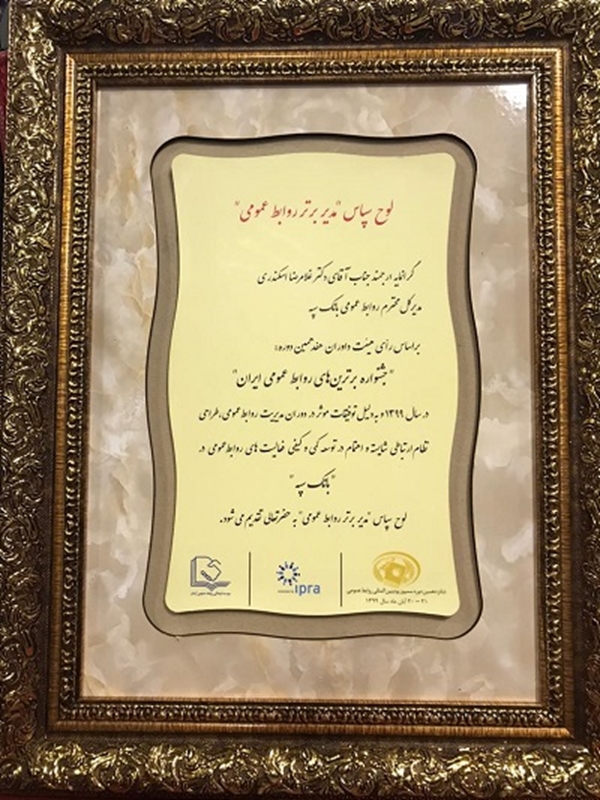 لوح سپاس "مدیر برتر روابط عمومی"
گرانمایه ارجمند جناب آقای دکتر غلامرضا اسکندری
مدیرکل محترم روابط عمومی بانک سپه
براساس رأی هیئت داوران هفدهمین دوره:
"جشنواره برترین‌های روابط عمومی ایران"
در سال ۱۳۹۹ و به دلیل توفیقات موثر در دوران مدیریت روابط عمومی، طراحی
نظام ارتباطی شایسته و اهتمام در توسعه کمی و کیفی فعالیت های روابط عمومی در
"بانک سپه"
لوح سپاس "مدیر برتر روابط عمومی" به حضرتعالی تقدیم می شود.
ipra
شانزدهمین دوره سمپوزیوم بین المللی روابط عمومی
۲۱ - ۲۰ آبان ماه سال ۱۳۹۹